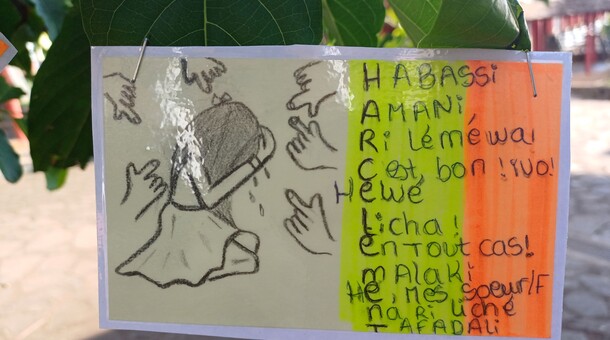 HABASSI
AMANI,
Ri léméwa!
C'est, bon !ivo!
Hewe
Licha!
EnTout cas!
MALAKI
HE, MES soeur/F
nA Ri LichE
TAFADALI